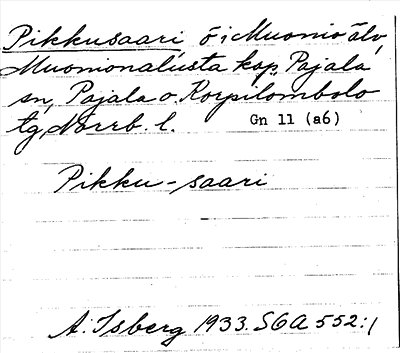 Pikkusaari ö i Muonio älv,
Muonionalusta kap, Pajala
sn, Pajala o. Korpilombolo
tg, Norrb. l.
Gn 11 (a6)
Pikku-saari
A. Isberg 1933. SGA 552:1